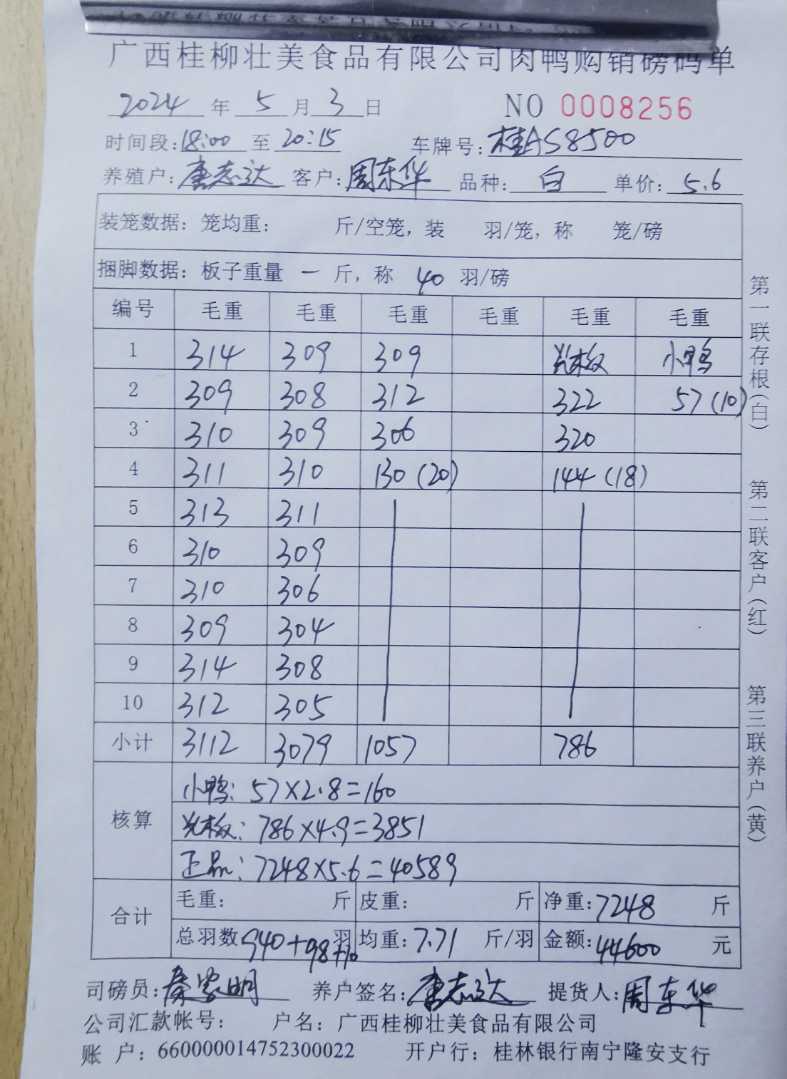 广西桂柳壮美食品有限公司肉鸭购销磅码单
2024 年 5 月 3 日 NO 0008256
时间段:18:00 至 20:15 车牌号:桂AS8500
养殖户:唐志达 客户:周东华 品种:白 单价:5.6
装笼数据:笼均重: 斤/空笼,装 羽/笼,称 笼/磅
捆脚数据:板子重量 一 斤,称 40 羽/磅
编号 毛重 毛重 毛重 毛重 毛重 毛重
1 314 309 309 光板 小鸭
2 309 308 312 322 57(10)
3 310 309 306 320
4 311 310 130(20) 144(18)
5 313 311
6 310 309
7 310 306
8 309 304
9 314 308
10 312 305
小计 3112 3079 1057 786
核算
小鸭:57×2.8=160
光板:786×4.9=3851
正品:7248×5.6=40589
合计
毛重: 斤 皮重: 斤 净重:7248 斤
总羽数 940+98+10 羽 均重:7.71 斤/羽 金额:44600 元
司磅员:秦家明 养户签名:唐志达 提货人:周东华
公司汇款帐号: 户名:广西桂柳壮美食品有限公司
账 户:660000014752300022 开户行:桂林银行南宁隆安支行
第一联存根(白)
第二联客户(红)
第三联养户(黄)